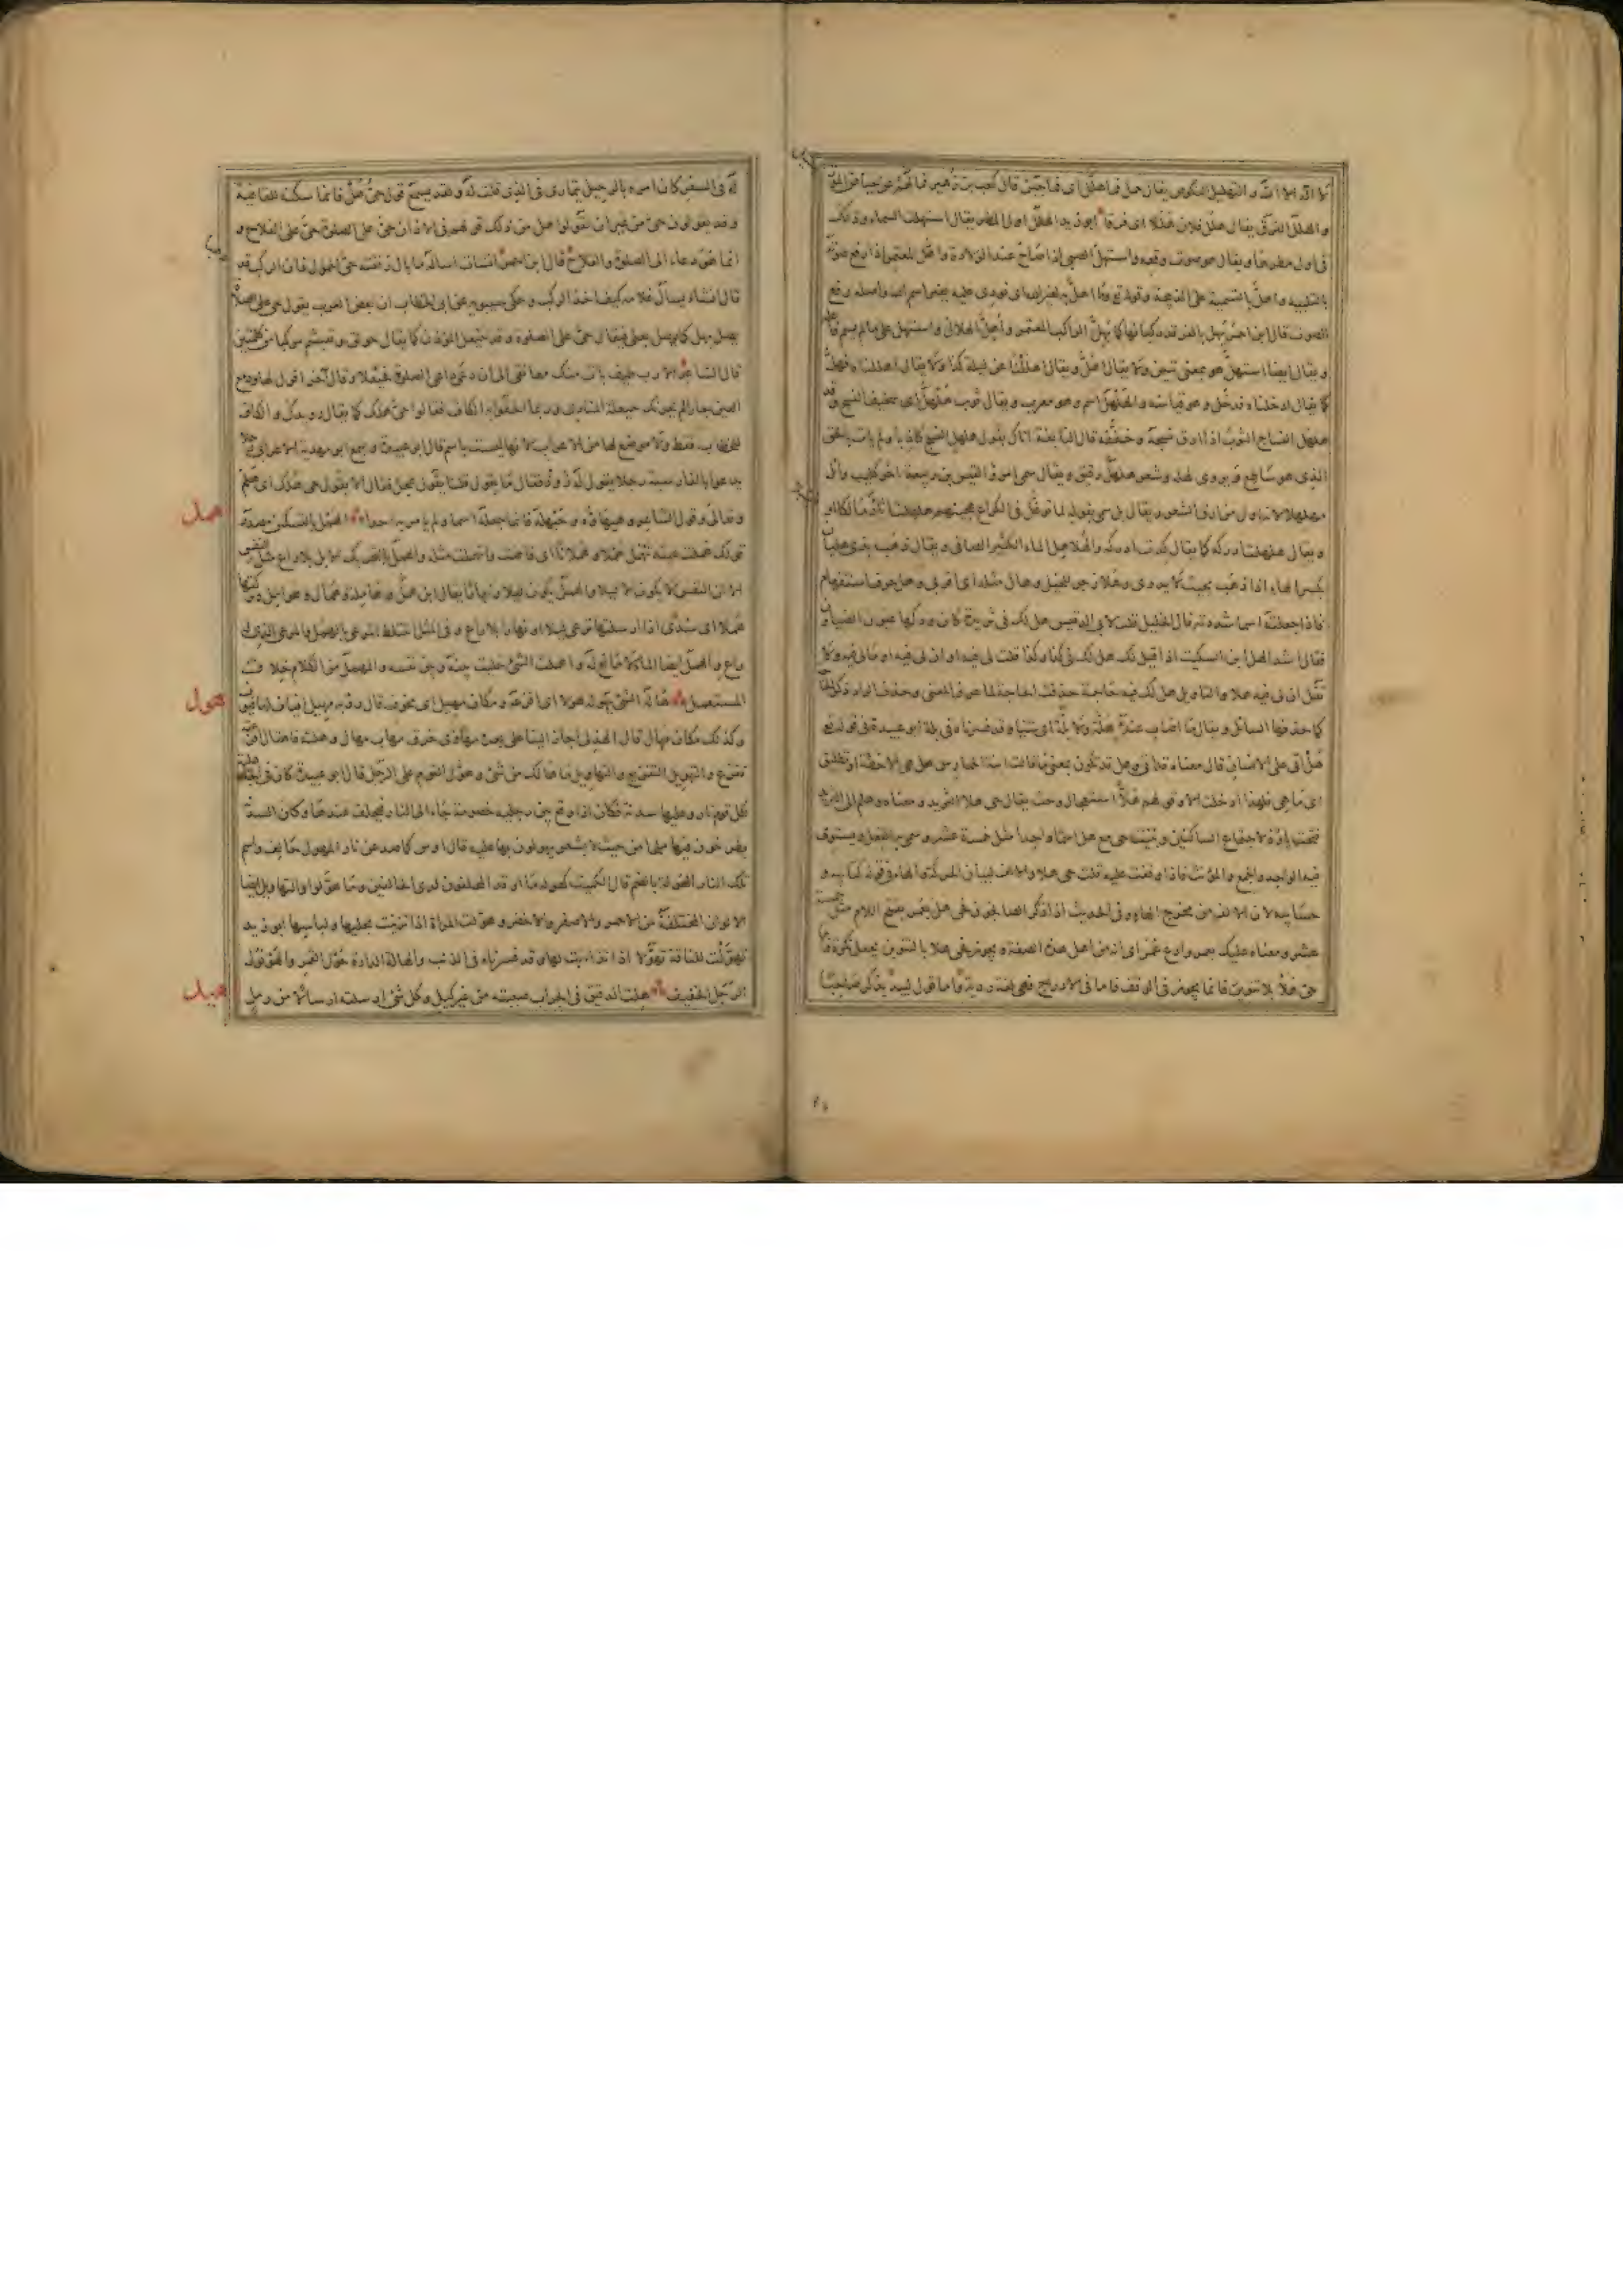 لا اله الا الله والتهليل النكوص يقال حمل فما هلل اى فما جبن قال كعب بن زهير فما لهم عن حياض الموت
والهلل الفرق يقال هلك فلان هللا اى فرقا ابو زيد الهلل اول المطر يقال استهلت السماء وذلك
فى اول مطرها ويقال هو صوت وقعه واستهل الصبى اذا صاح عند الولادة واهل المعتمر اذا رفع صوته
بالتلبية واهل بالتسمية على الذبيحة وقوله تع وما اهل به لغير الله اى نودى عليه بغير اسم الله واصله رفع
الصوت قال ابن احمر يهل بالفرقد ركبانها كما يهل الراكب المعتمر واهل الهلال واستهل على ما لم يسم فاعله
ويقال ايضا استهل هو بمعنى تبين ولا يقال اهل ويقال اهللنا عن ليلة كذا ولا يقال اهللناه فهل
كما يقال ادخلناه فدخل وهو قياسه والهلهل اسم وهو معرب ويقال ثوب هلهل اى سخيف النسج وقد
هلهل النساج الثوب اذا ارق نسجه وخففه قال النابغة اتاك بقول هلهل النسج كاذب ولم يات بالحق
الذى هو ساطع ويروى لهله وشعر هلهل رقيق ويقال سمى امرؤ القيس بن ربيعة اخو كليب وائل
مهلهلا لانه اول من ارق الشعر ويقال بل سمى بقوله لما توغل فى الكراع هجينهم هلهلت اثار مالكا او
ويقال هلهلت ادركه كما يقال كدت ادركه والهلاهل الماء الكثير الصافى ويقال ذهب بذى هليان
بكسر الهاء اذا ذهب بحيث لا يدرى وهلا زجر للخيل وهال مثله اى اقربى وهل حرف استفهام
فاذا جعلته اسما شددته قال الخليل قلت لابى الدقيش هل لك فى ثريدة كان ودكها عيون الضياون
فقال اشد الهل ابن السكيت اذا قيل لك هل لك فى كذا وكذا قلت لى فيه او ان لى فيه او مالى فيه ولا
تقل ان لى فيه هلا والتاويل هل لك فيه حاجة فحذفت الحاجة لما عرف المعنى وحذف الراد ذكر الحاجة
كما حذفها السائل ويقال ما اصاب عنده هلة ولا بلة اى شيئا وقد فسرناه فى بلة ابو عبيدة فى قوله تع
هل اتى على الانسان قال معناه قد اتى وهل قد تكون بمعنى ما قالت ابنة الحمارس هل هى الا حظة او تطليق
اى ما هى فلهذا ادخلت الا وقولهم هلا استعجال وحث يقال حى هلا الثريد ومعناه هلم الى الثريد
فتحت ياؤه لاجتماع الساكنين وبنيت حى مع هل اسما واحدا مثل خمسة عشر وسمى به الفعل ويستوى
فيه الواحد والجمع والمؤنث فاذا وقفت عليه قلت حى هلا والالف لبيان الحركة كالهاء فى قوله كتابيه و
حسابيه لان الالف من مخرج الهاء وفى الحديث اذا ذكر الصالحون فحى هل بعمر بفتح اللام مثل خمسة
عشر ومعناه عليك بعمر وادع عمر اى انه من اهل هذه الصفة ويجوز فحى هلا بالتنوين يجعل نكرة فاما
حى هلا بلا تنوين فانما يجوز فى الوقف فاما فى الادراج فهى لغة رديئة واما قول لبيد يذكر صاحبا
له فى السفر كان امره بالرحيل يتمارى فى الذى قلت له ولقد يسمع قولى حى هل فانما سكنه للقافية
وقد يقولون حى من غير ان يقولوا هل من ذلك قولهم فى الاذان حى على الصلوة حى على الفلاح و
انما هو دعاء الى الصلوة والفلاح قال ابن احمر انشات اساله ما بال رفقته حى الحمول فان الركب قد
قال انشا يسال غلامه كيف اخذ الركب وحكى سيبويه عن ابى الخطاب ان بعض العرب يقول حى هلا الصلوة
يصل بهل كما يوصل بعلى فيقال حى على الصلوة وقد حيعل المؤذن كما يقال حولق وتعبشم مركبا من كلمتين
قال الشاعر الا رب طيف بات منك معانقى الى ان دعى داعى الصلوة فحيعلا وقال آخر اقول لها ودمع
العين جار الم يحزنك حيعلة المنادى وربما الحقوا به الكاف فقالوا حى هلك كما يقال رويدك والكاف
للخطاب فقط ولا موضع لها من الاعراب لانها ليست باسم قال ابو عبيدة وسمع ابو مهدية الاعرابى رجلا
يدعوا بالفارسية رجلا يقول له زوذ فقال ما يقول قلنا يقول عجل فقال الا يقول حى هلك اى هلم
وتعال وقول الشاعر هيهاؤه وحيهله فانما جعله اسما ولم يامر به احدا الهمل بالتسكين مصدر
همل
قولك هملت عينه تهمل هملا وهملانا اى فاضت وانهملت مثله والهمل بالتحريك الابل بلا راع مثل النفش
الا ان النفش لا يكون الا ليلا والهمل يكون ليلا ونهارا يقال ابل همل وهاملة وهمال وهوامل وتركتها
هملا اى سدى اذا ارسلتها ترعى ليلا او نهارا بلا راع وفى المثل اختلط المرعى بالهمل والمرعى الذى له
راع والهمل ايضا الماء لا مانع له واهملت الشئ خليت بينه وبين نفسه والمهمل من الكلام خلاف
المستعمل هاله الشئ يهوله هولا اى افزعه ومكان مهيل اى مخوف قال رؤبة مهيل افياف لها فيوف
هول
وكذلك مكان مهال قال الهذلى اجاز الينا على بعده مهاوى خرق مهاب مهال وهلته فاهتال افزعته
ففزع والتهويل التفزيع والتهاويل ما هالك من شئ وهول القوم على الرجل قال ابو عبيدة كان فى الجاهلية
لكل قوم نار وعليها سدنة فكان اذا وقع بين رجلين خصومة جاء الى النار فيحلف عندها وكان السدنة
يطرحون فيها ملحا من حيث لا يشعر يهولون بها عليه قال اوس كما صد عن نار المهول حالف واسم
تلك النار الهولة بالضم قال الكميت كهولة ما اوقد المحلفون لدى الحالفين وما هولوا والتهاويل ايضا
الالوان المختلفة من الاحمر والاصفر والاخضر وهولت المراة اذا تزينت بحليها ولباسها ابو زيد
تهولت للناقة تهولا اذا تذاءبت لها وقد فسرناه فى الذئب والهالة الدارة حول القمر والهولول
الرجل الخفيف هلت الدقيق فى الجراب صببته من غير كيل وكل شئ ارسلته ارسالا من رمل
هيل